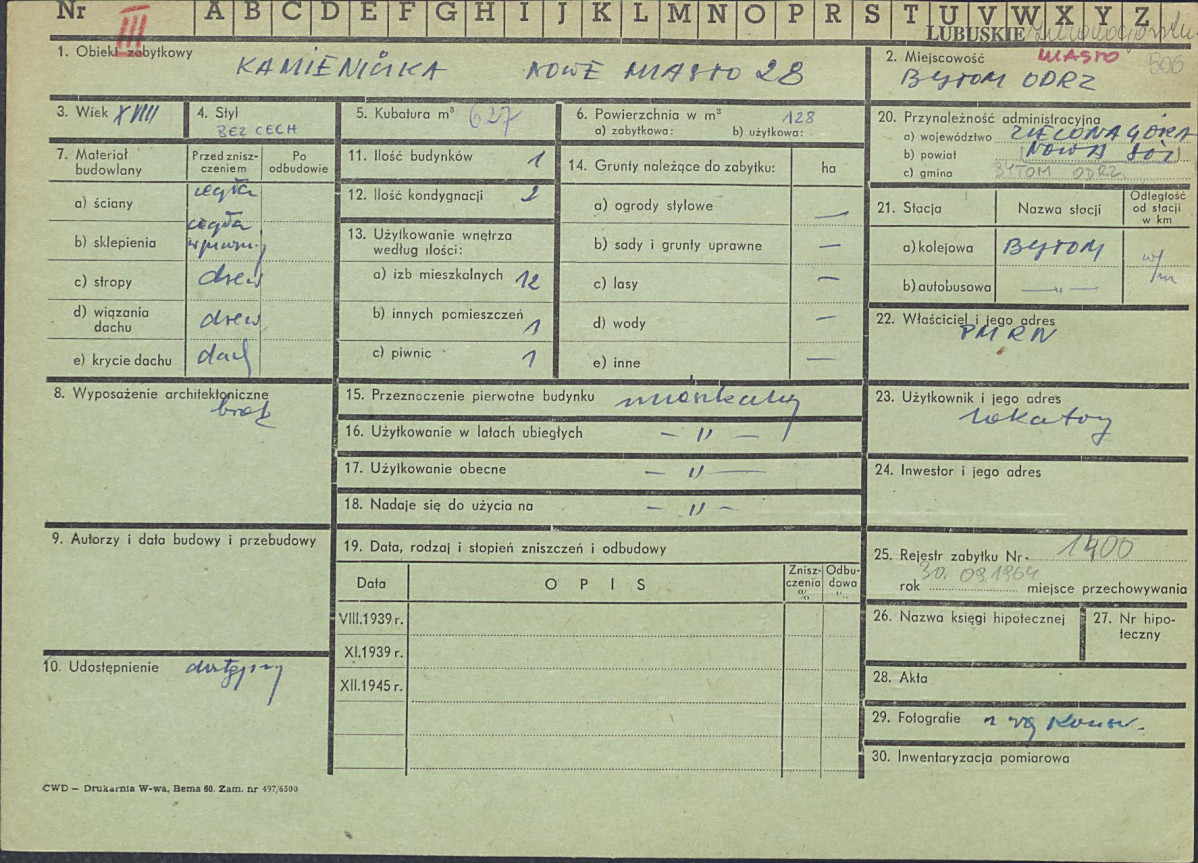 Nr III A B C D E F G H I J K L M N O P R S T U V W X Y Z
LUBUSKIE
1. Obiekt zabytkowy
KAMIENICZKA NOWE MIASTO 28
2. Miejscowość MIASTO 506
BYTOM ODRZ
3. Wiek XVIII
4. Styl
BEZ CECH
5. Kubatura m³ 627
6. Powierzchnia w m² 128
a) zabytkowa: b) użytkowa:
20. Przynależność administracyjna
a) województwo ZIELONA GÓRA
b) powiat NOWA SÓL
c) gmina BYTOM ODRZ.
7. Materiał budowlany
Przed znisz-
czeniem
Po
odbudowie
a) ściany cegła
b) sklepienia cegła
w piwnicy
c) stropy drew
d) wiązania
dachu drew
e) krycie dachu dach
11. Ilość budynków 1
12. Ilość kondygnacji 2
13. Użytkowanie wnętrza
według ilości:
a) izb mieszkalnych 12
b) innych pomieszczeń 1
c) piwnic 1
14. Grunty należące do zabytku: ha
a) ogrody stylowe —
b) sady i grunty uprawne —
c) lasy —
d) wody —
e) inne —
21. Stacja
Nazwa stacji
Odległość
od stacji
w km
a) kolejowa BYTOM
b) autobusowa — " —
22. Właściciel i jego adres
PMRN
8. Wyposażenie architektoniczne
brak
15. Przeznaczenie pierwotne budynku mieszkalny
16. Użytkowanie w latach ubiegłych — " —
17. Użytkowanie obecne — " —
18. Nadaje się do użycia na — " —
23. Użytkownik i jego adres
lokatorzy
24. Inwestor i jego adres
9. Autorzy i data budowy i przebudowy
19. Data, rodzaj i stopień zniszczeń i odbudowy
Data
O P I S
Znisz-
czenia
%
Odbu-
dowa
%
VIII.1939 r.
XI.1939 r.
XII.1945 r.
25. Rejestr zabytku Nr 1400
rok 30.09.1964 miejsce przechowywania
26. Nazwa księgi hipotecznej
27. Nr hipo-
teczny
10. Udostępnienie dostępny
28. Akta
29. Fotografie
30. Inwentaryzacja pomiarowa
CWD — Drukarnia W-wa, Bema 60. Zam. nr 497/6500